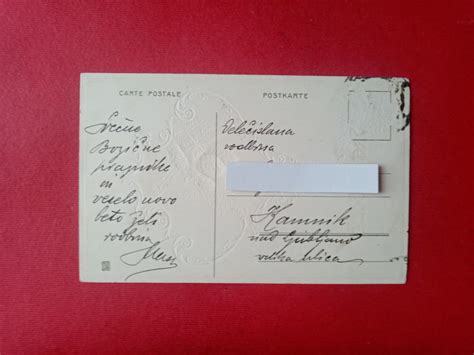 CARTE POSTALE
POSTKARTE
Srečne
Božične
praznike
in
veselo novo
leto želi
rodbina
Velečislana
rodbina
Kamnik
nad Ljubljano
velika ulica